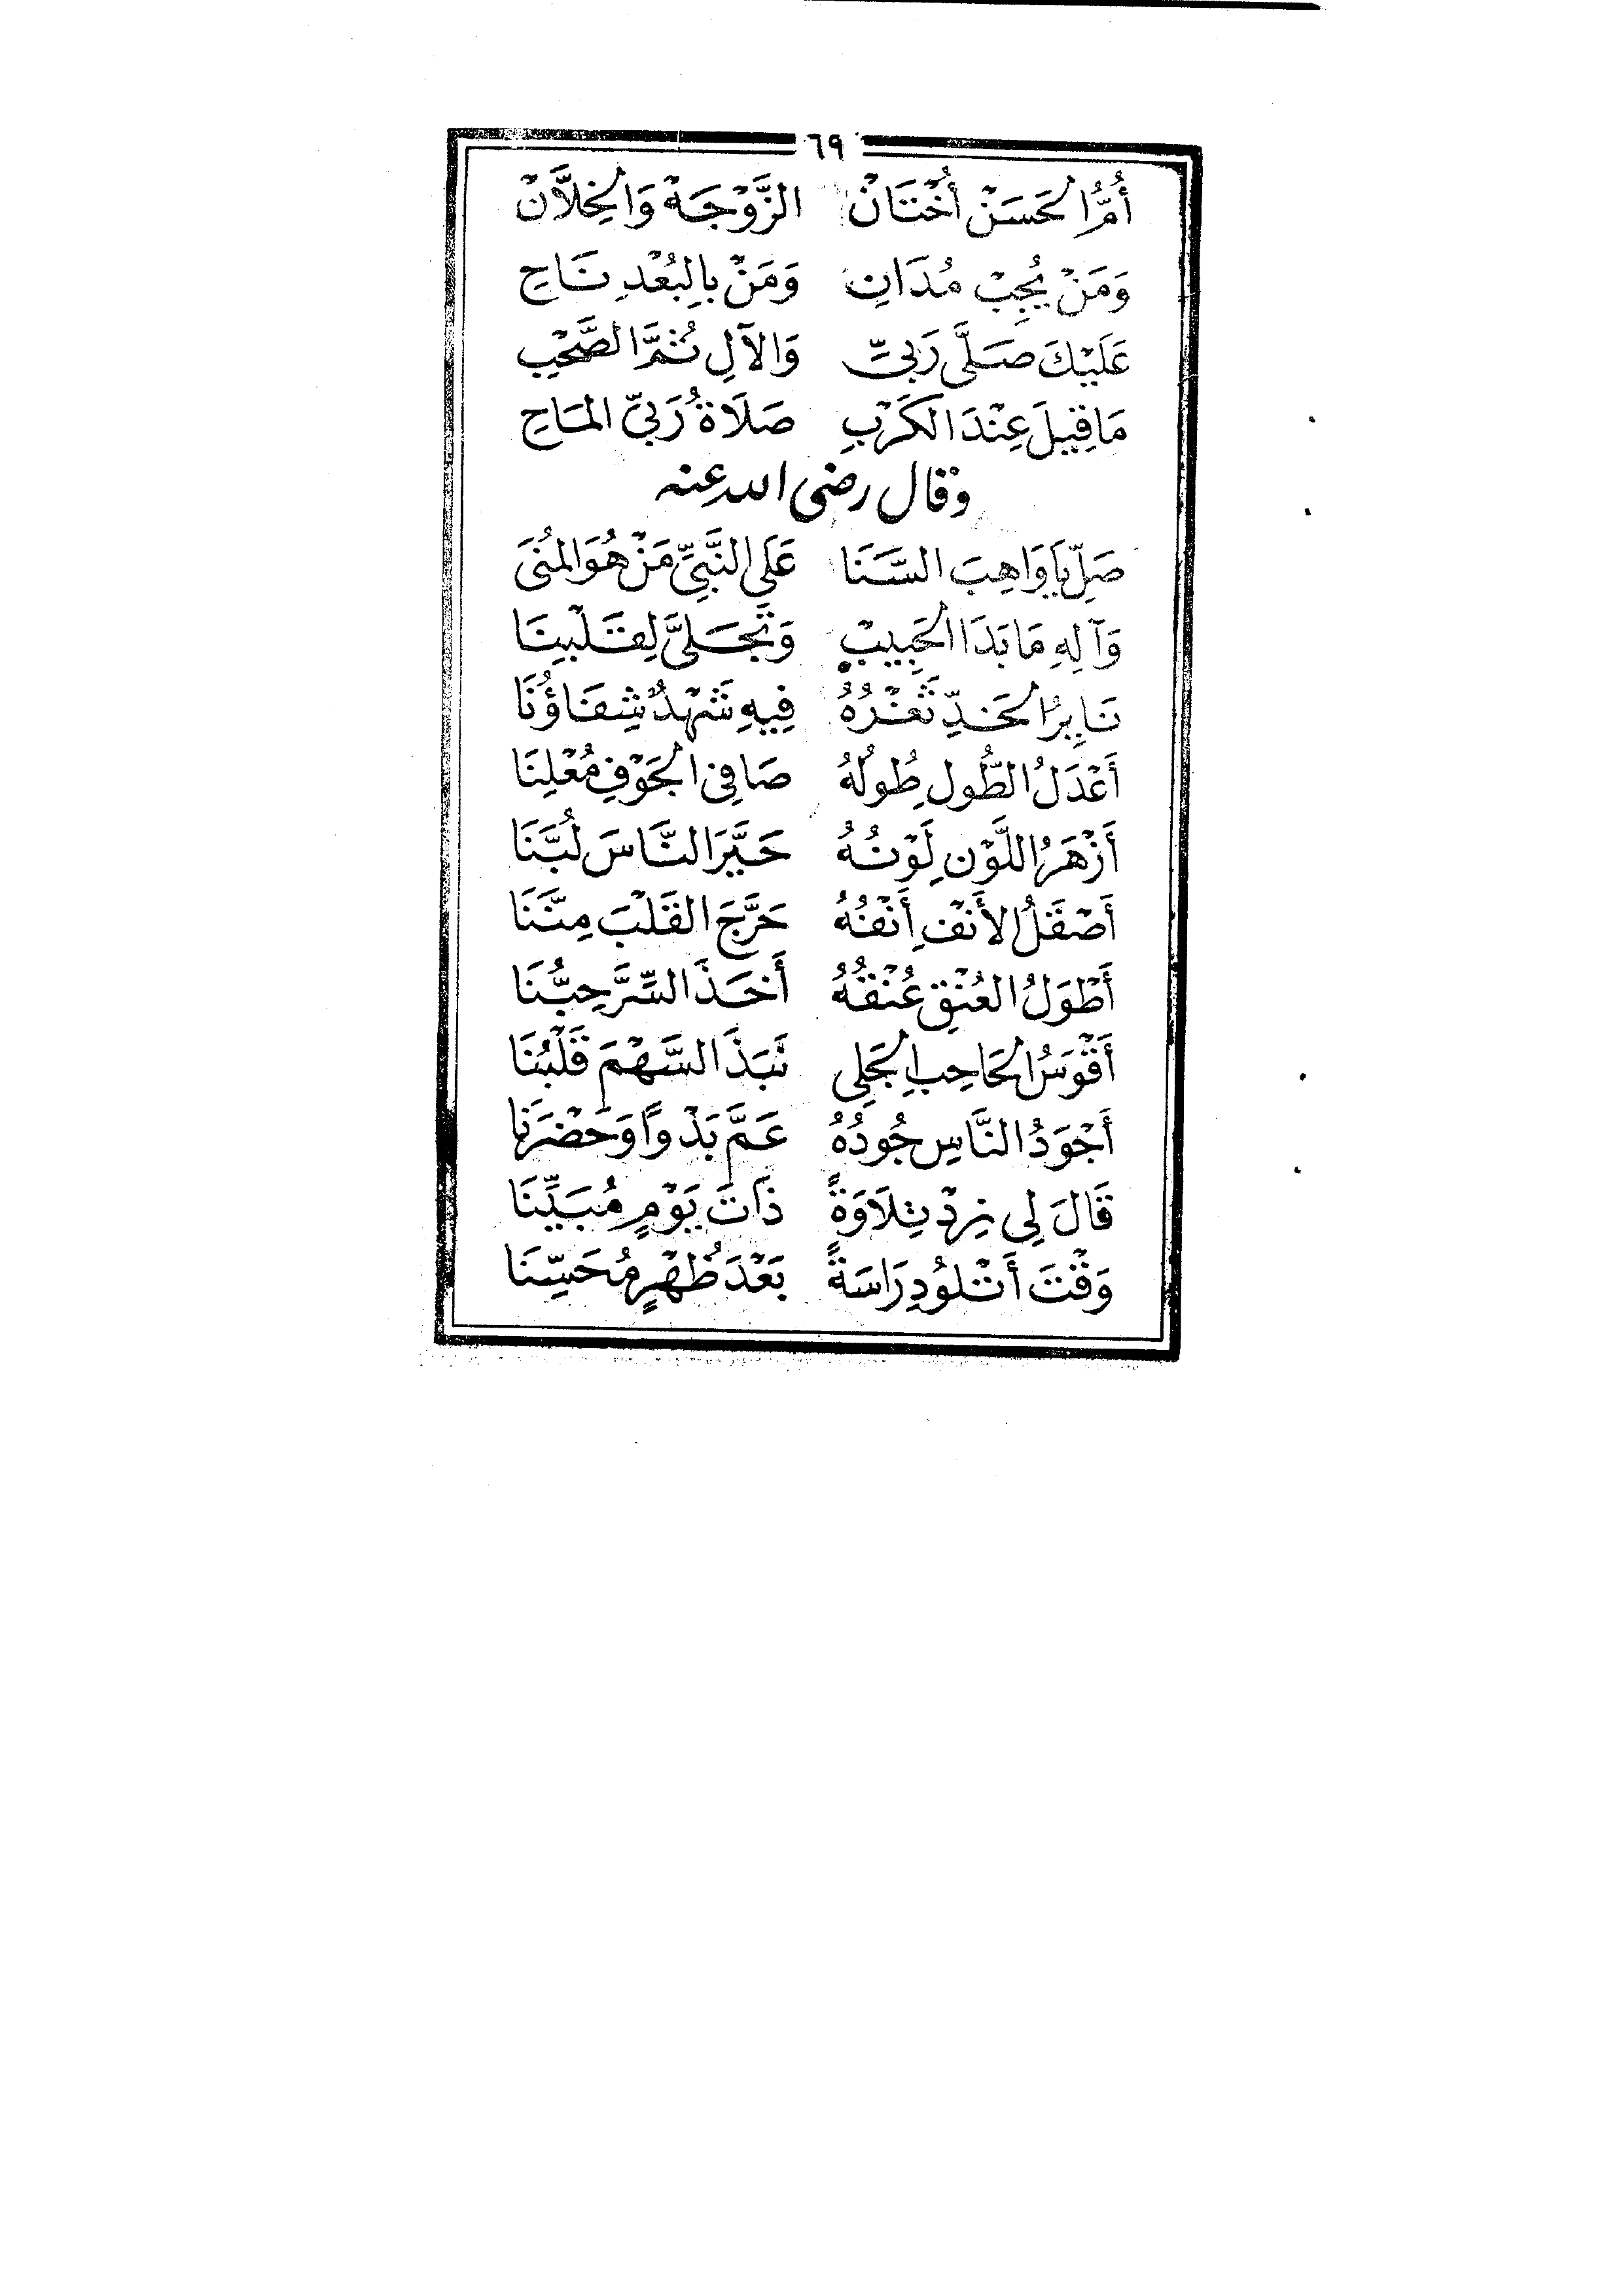 ٦٩
أُمُّ الحَسَنْ أُخْتَانْ الزَّوْجَةْ وَالخِلَّانْ
وَمَنْ يُجِبْ مُدَانِ وَمَنْ بِالبُعْدِ نَاحِ
عَلَيْكَ صَلَّى رَبِّي وَالآلِ ثُمَّ الصَّحْبِ
مَا قِيلَ عِنْدَ الكَرْبِ صَلَاةُ رَبِّي المَاحِ
وقال رضى الله عنه
صَلِّ يَا وَاهِبَ السَّنَا عَلَى النَّبِيِّ مَنْ هُوَ المُنَى
وَآلِهِ مَا بَدَا الحَبِيبْ وَتَجَلَّى لِقَلْبِنَا
نَايِرُ الخَدِّ ثَغْرُهُ فِيهِ شَهْدٌ شِفَاؤُنَا
أَعْدَلُ الطُّولِ طُولُهُ صَافِي الجَوْفِ مُعْلِنَا
أَزْهَرُ اللَّوْنِ لَوْنُهُ حَيَّرَ النَّاسَ لُبَّنَا
أَصْقَلُ الأَنْفِ أَنْفُهُ حَرَّجَ القَلْبَ مِنَّنَا
أَطْوَلُ العُنْقِ عُنْقُهُ أَخَذَ السِّرَّ حِبُّنَا
أَقْوَسُ الحَاجِبِ الجَلِي نَبَذَ السَّهْمَ قَلْبُنَا
أَجْوَدُ النَّاسِ جُودُهُ عَمَّ بَدْواً وَحَضْرَنَا
قَالَ لِي زِدْ تِلَاوَةً ذَاتَ يَوْمٍ مُبَيِّنَا
وَقْتَ أَتْلُو دِرَاسَةً بَعْدَ ظُهْرٍ مُحَسِّنَا